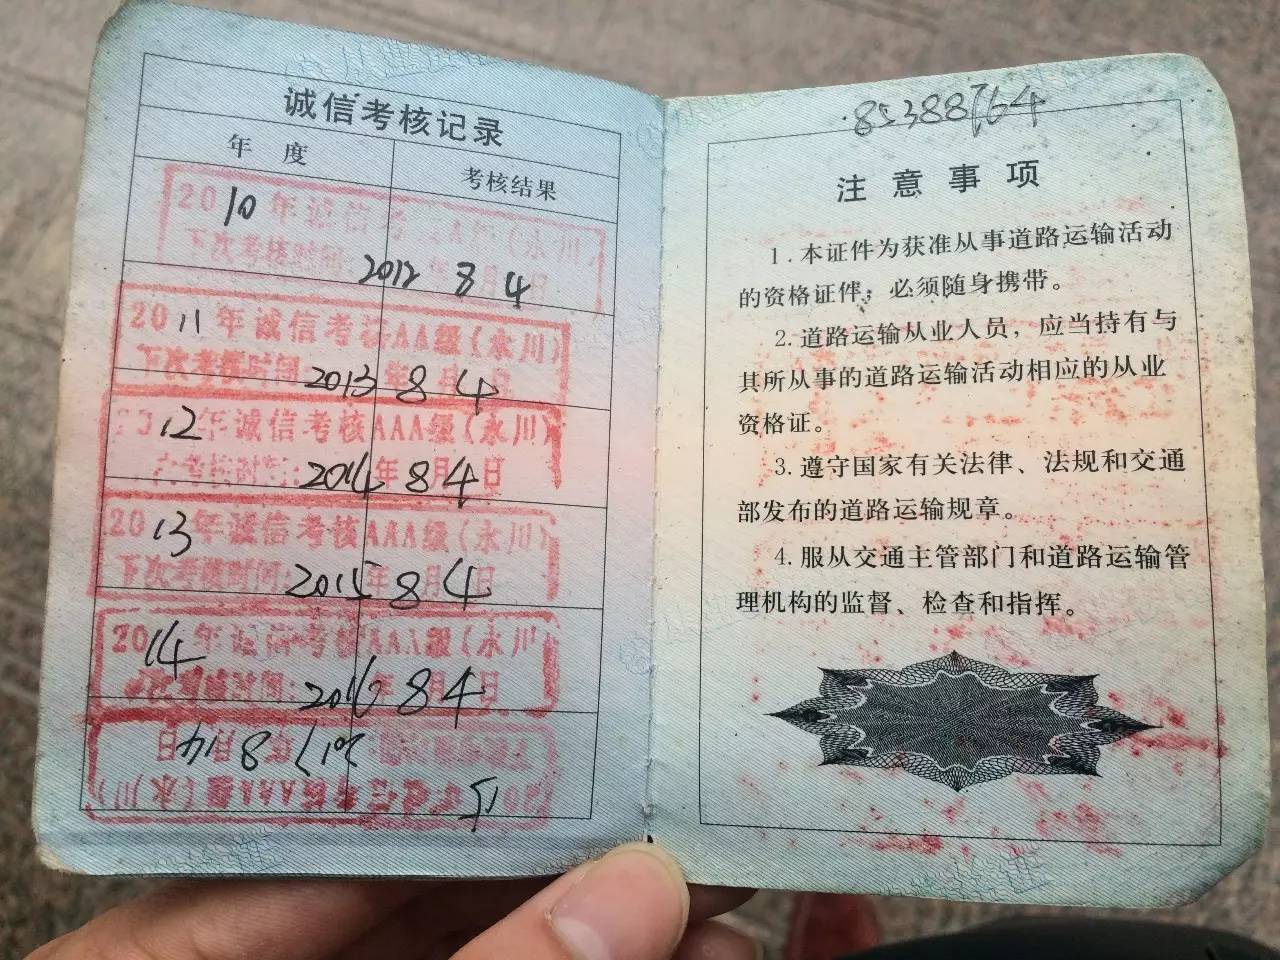 诚信考核记录
年 度
考核结果
2010年诚信考 A级(永川)
下次考核时间:2012 8月4日
2011年诚信考核AA级(永川)
下次考核时间:2013年8月4日
2012年诚信考核AAA级(永川)
次考核时间:2014年8月4日
2013年诚信考核AAA级(永川)
下次考核时间:2015年8月4日
2014年诚信考核AAA级(永川)
时间:2016年8月4日
2017年8月4日
2015 信考核AAA级(永川)
85388764
注意事项
1.本证件为获准从事道路运输活动
的资格证件,必须随身携带。
2.道路运输从业人员,应当持有与
其所从事的道路运输活动相应的从业
资格证。
3.遵守国家有关法律、法规和交通
部发布的道路运输规章。
4.服从交通主管部门和道路运输管
理机构的监督、检查和指挥。